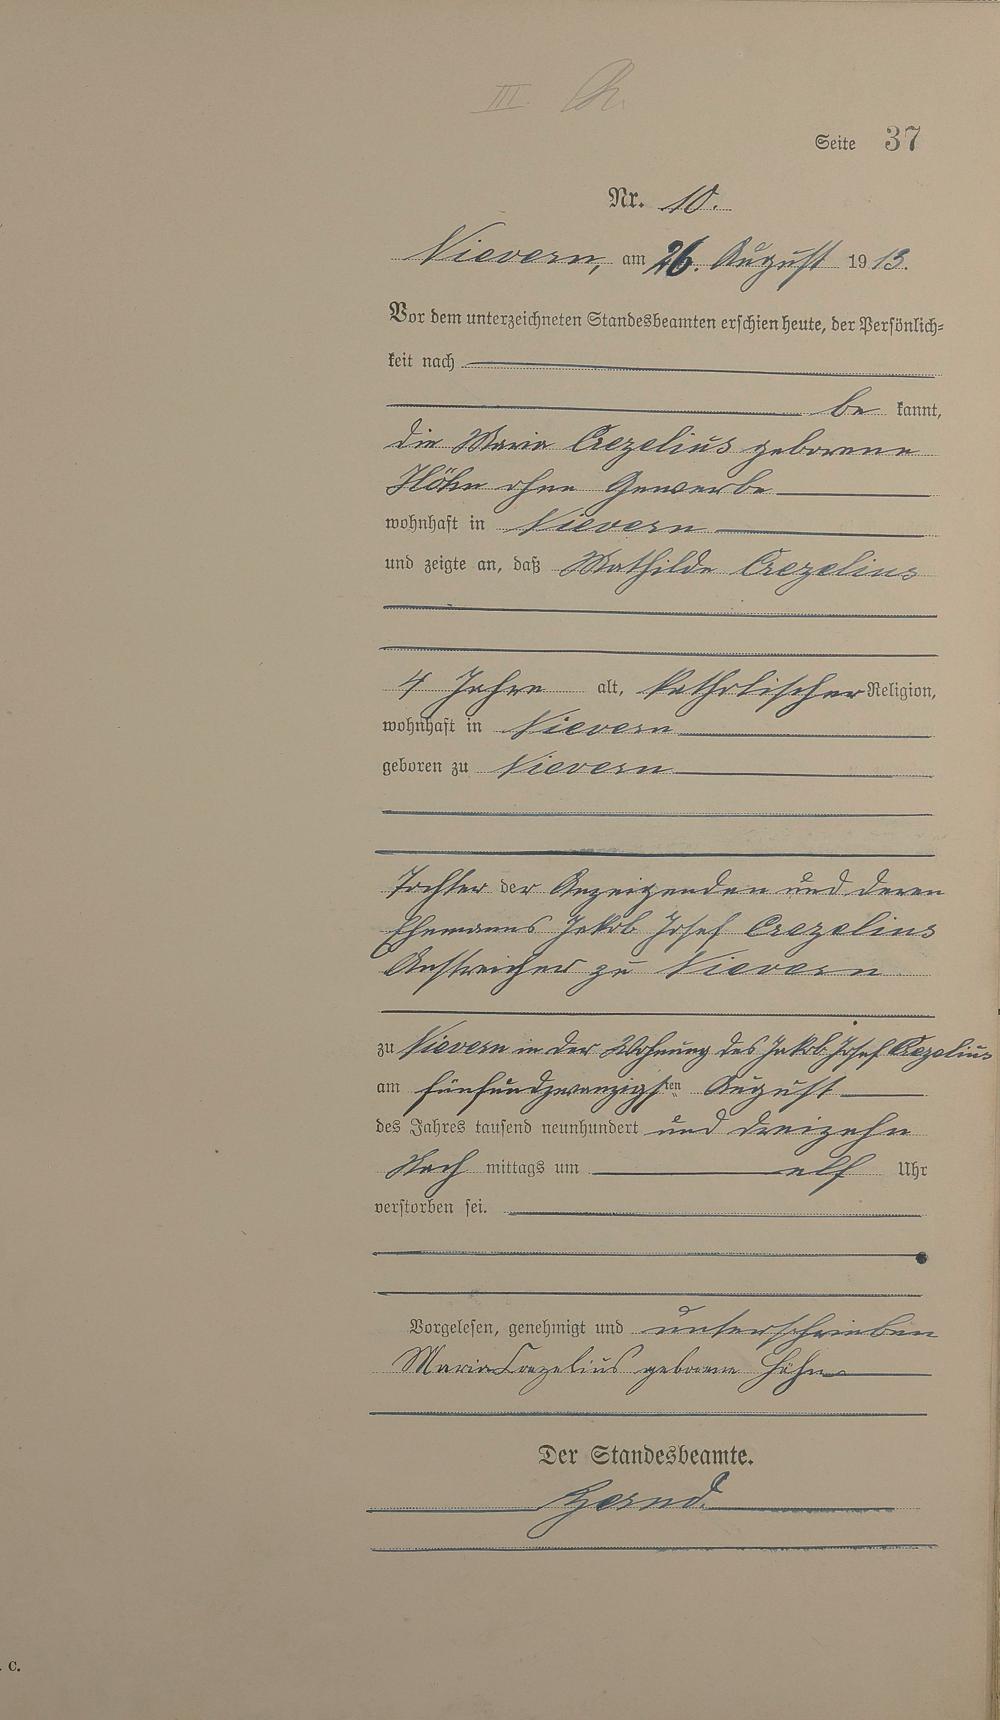 III.
Seite 37
Nr. 10.
Nievern, am 26. August 1913.
Vor dem unterzeichneten Standesbeamten erschien heute, der Persönlich=
keit nach
be kannt,
die Maria Crezelius geborene
Höhn ohne Gewerbe
wohnhaft in Nievern
und zeigte an, daß Mathilde Crezelius
4 Jahre alt, katholischer Religion,
wohnhaft in Nievern
geboren zu Nievern
Tochter der Anzeigenden und deren
Ehemanns Jakob Josef Crezelius
Anstreicher zu Nievern
zu Nievern in der Wohnung des Jakob Josef Crezelius
am fünfundzwanzigsten August
des Jahres tausend neunhundert und dreizehn
Nach mittags um elf Uhr
verstorben sei.
Vorgelesen, genehmigt und unterschrieben
Maria Crezelius geborene Höhn
Der Standesbeamte.
. C.